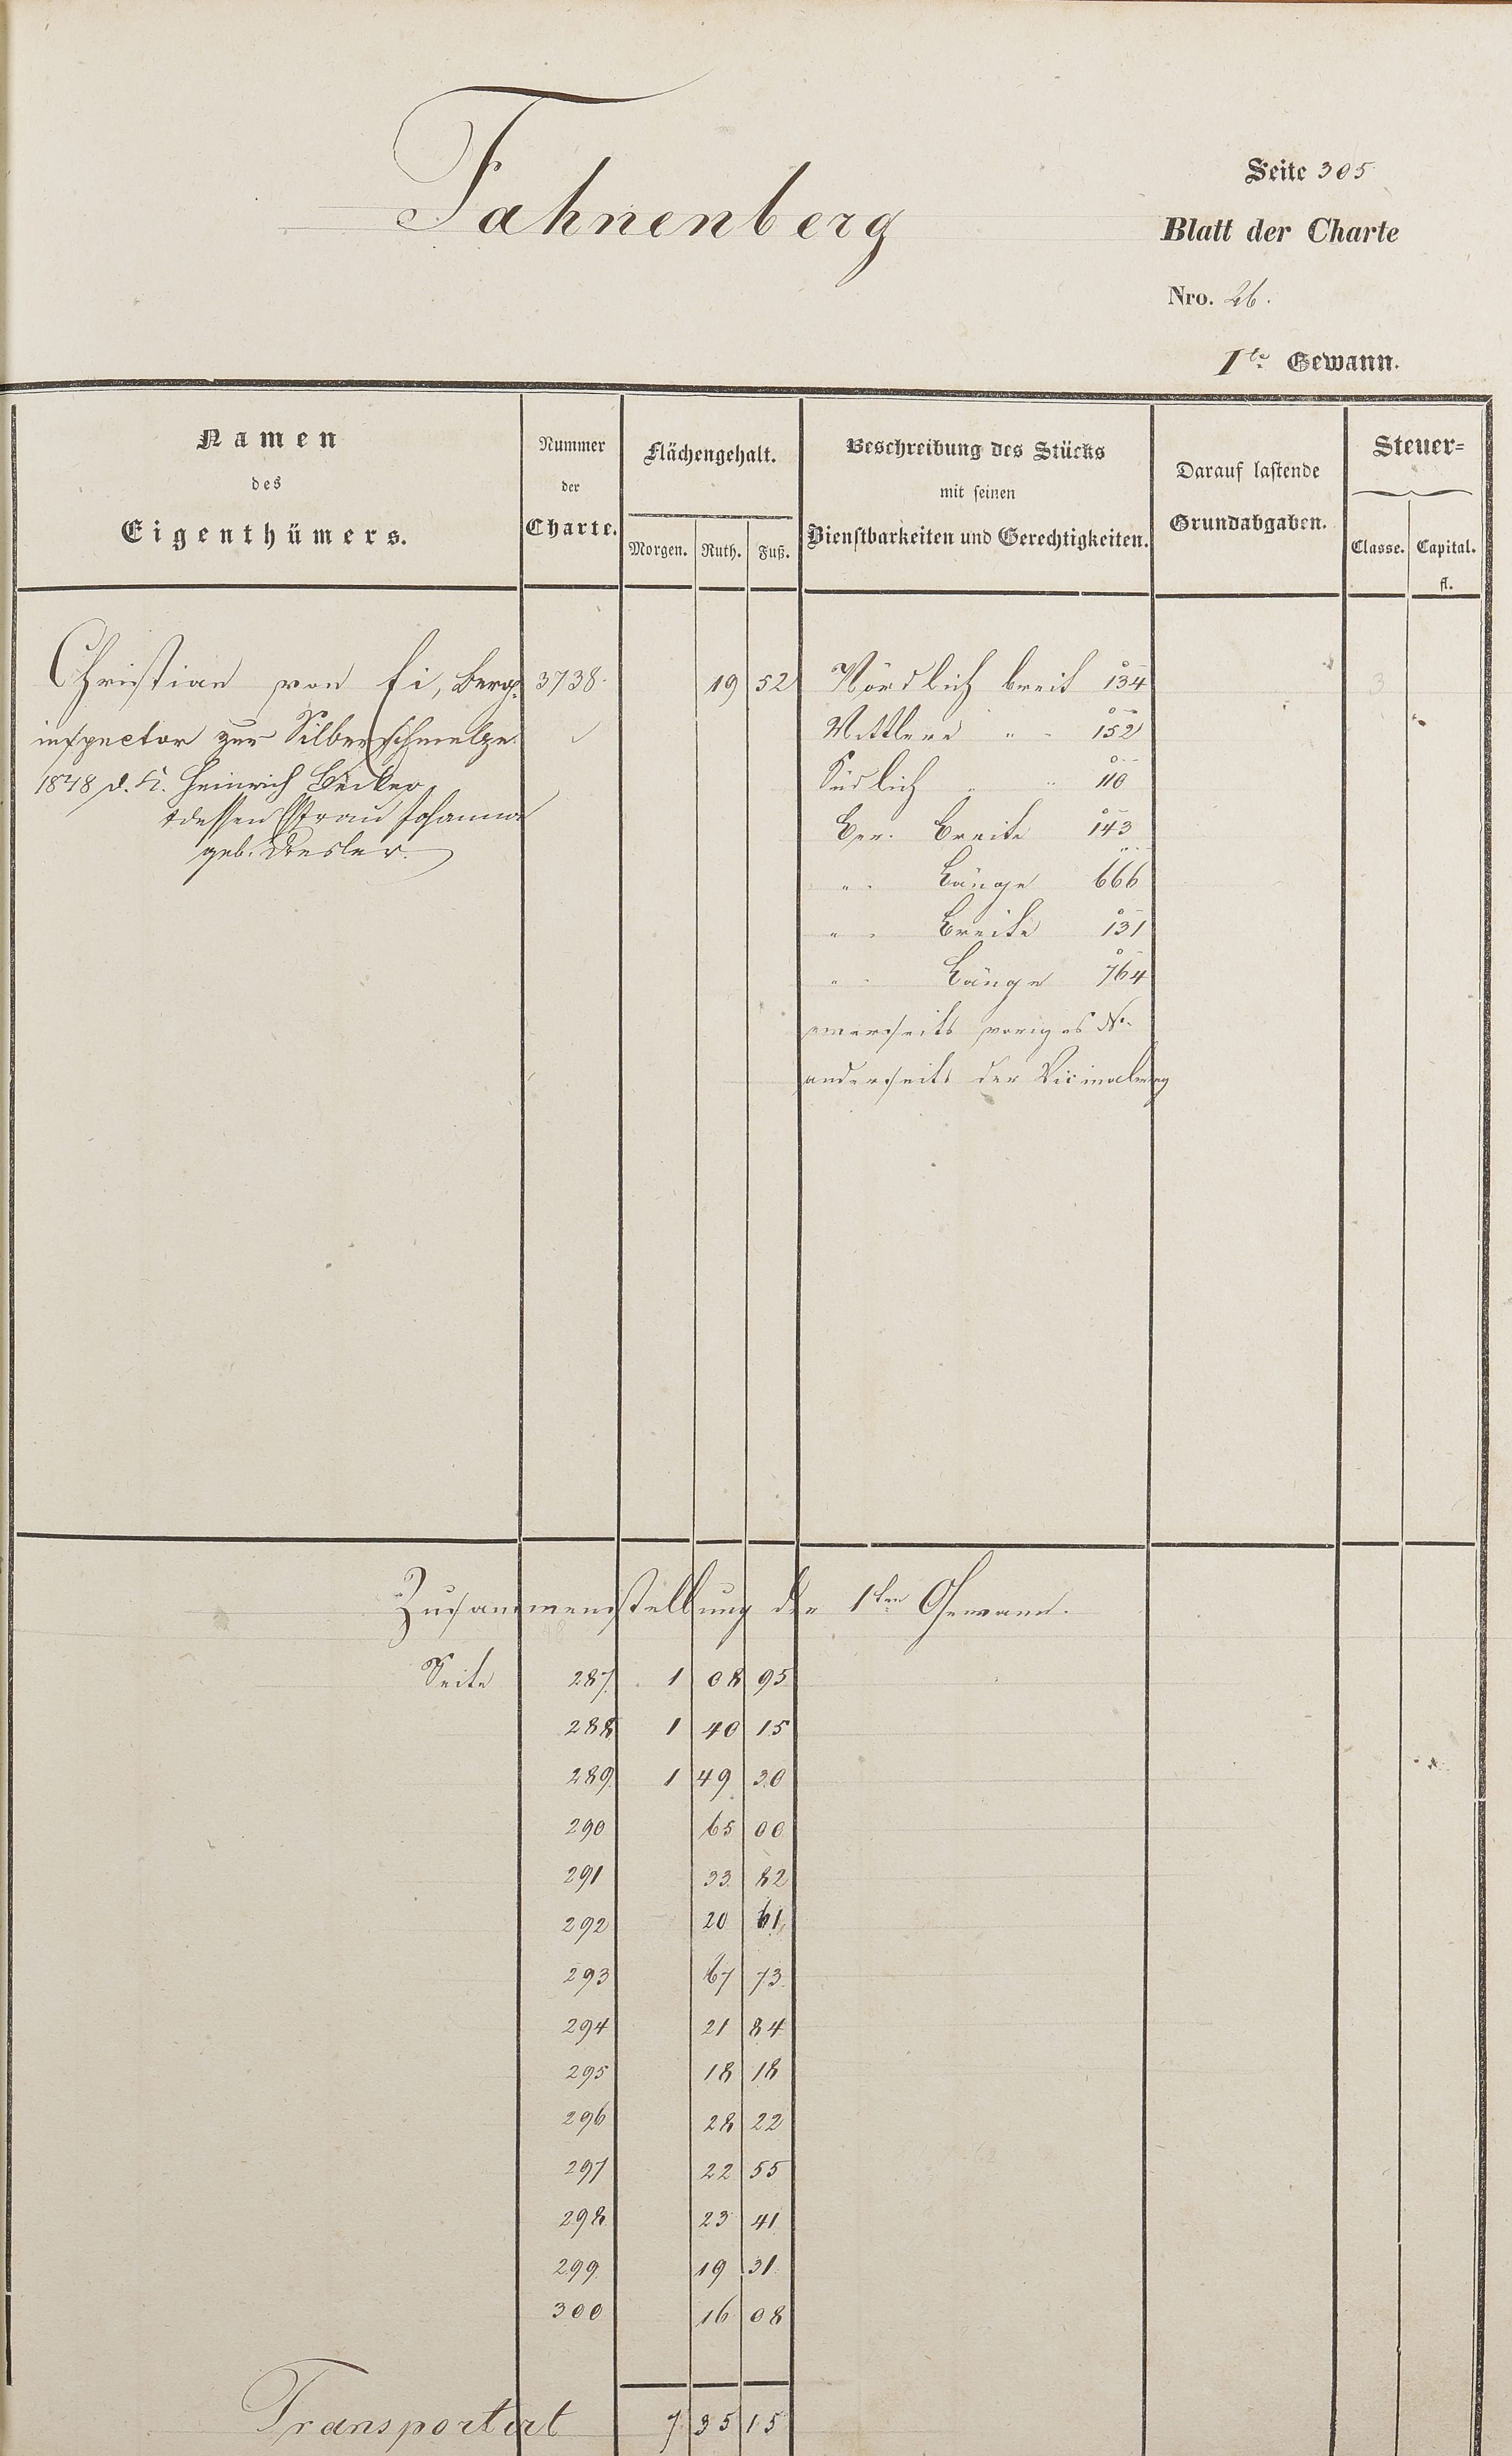 Fahnenberg
Seite 305
Blatt der Charte
Nro. 26.
1te Gewann.
Namen
des
Eigenthümers.
Nummer
der
Charte.
Flächengehalt.
Morgen. Ruth. Fuß.
Beschreibung des Stücks
mit seinen
Dienstbarkeiten und Gerechtigkeiten.
Darauf lastende
Grundabgaben.
Steuer=
Classe. Capital.
fl.
Christian von Ei, Berg- 3738. 19 52 Nördlich breit 134
inspector zur Silberschmelze. Mittlere " " 152
1848 d. H. Heinrich Becker Südlich " " 110
dessen Ehfrau Johanna Ber. Breite 143
geb. Dresler.
" " Länge 666
" " Breite 131
" " Länge 764
einerseits voriges No.
anderseits der Vicinalweg
3
Zusammenstellung der 1ten Gewann.
Seite 287. 1 08 95
288 1 40 15
289. 1 49 30
290 65 00
291 33 82
292 20 61
293 67 73
294 21 84
295 18 18
296 28 22
297 22 55
298 23 41
299 19 31
300 16 08
Transportirt 7 35 15